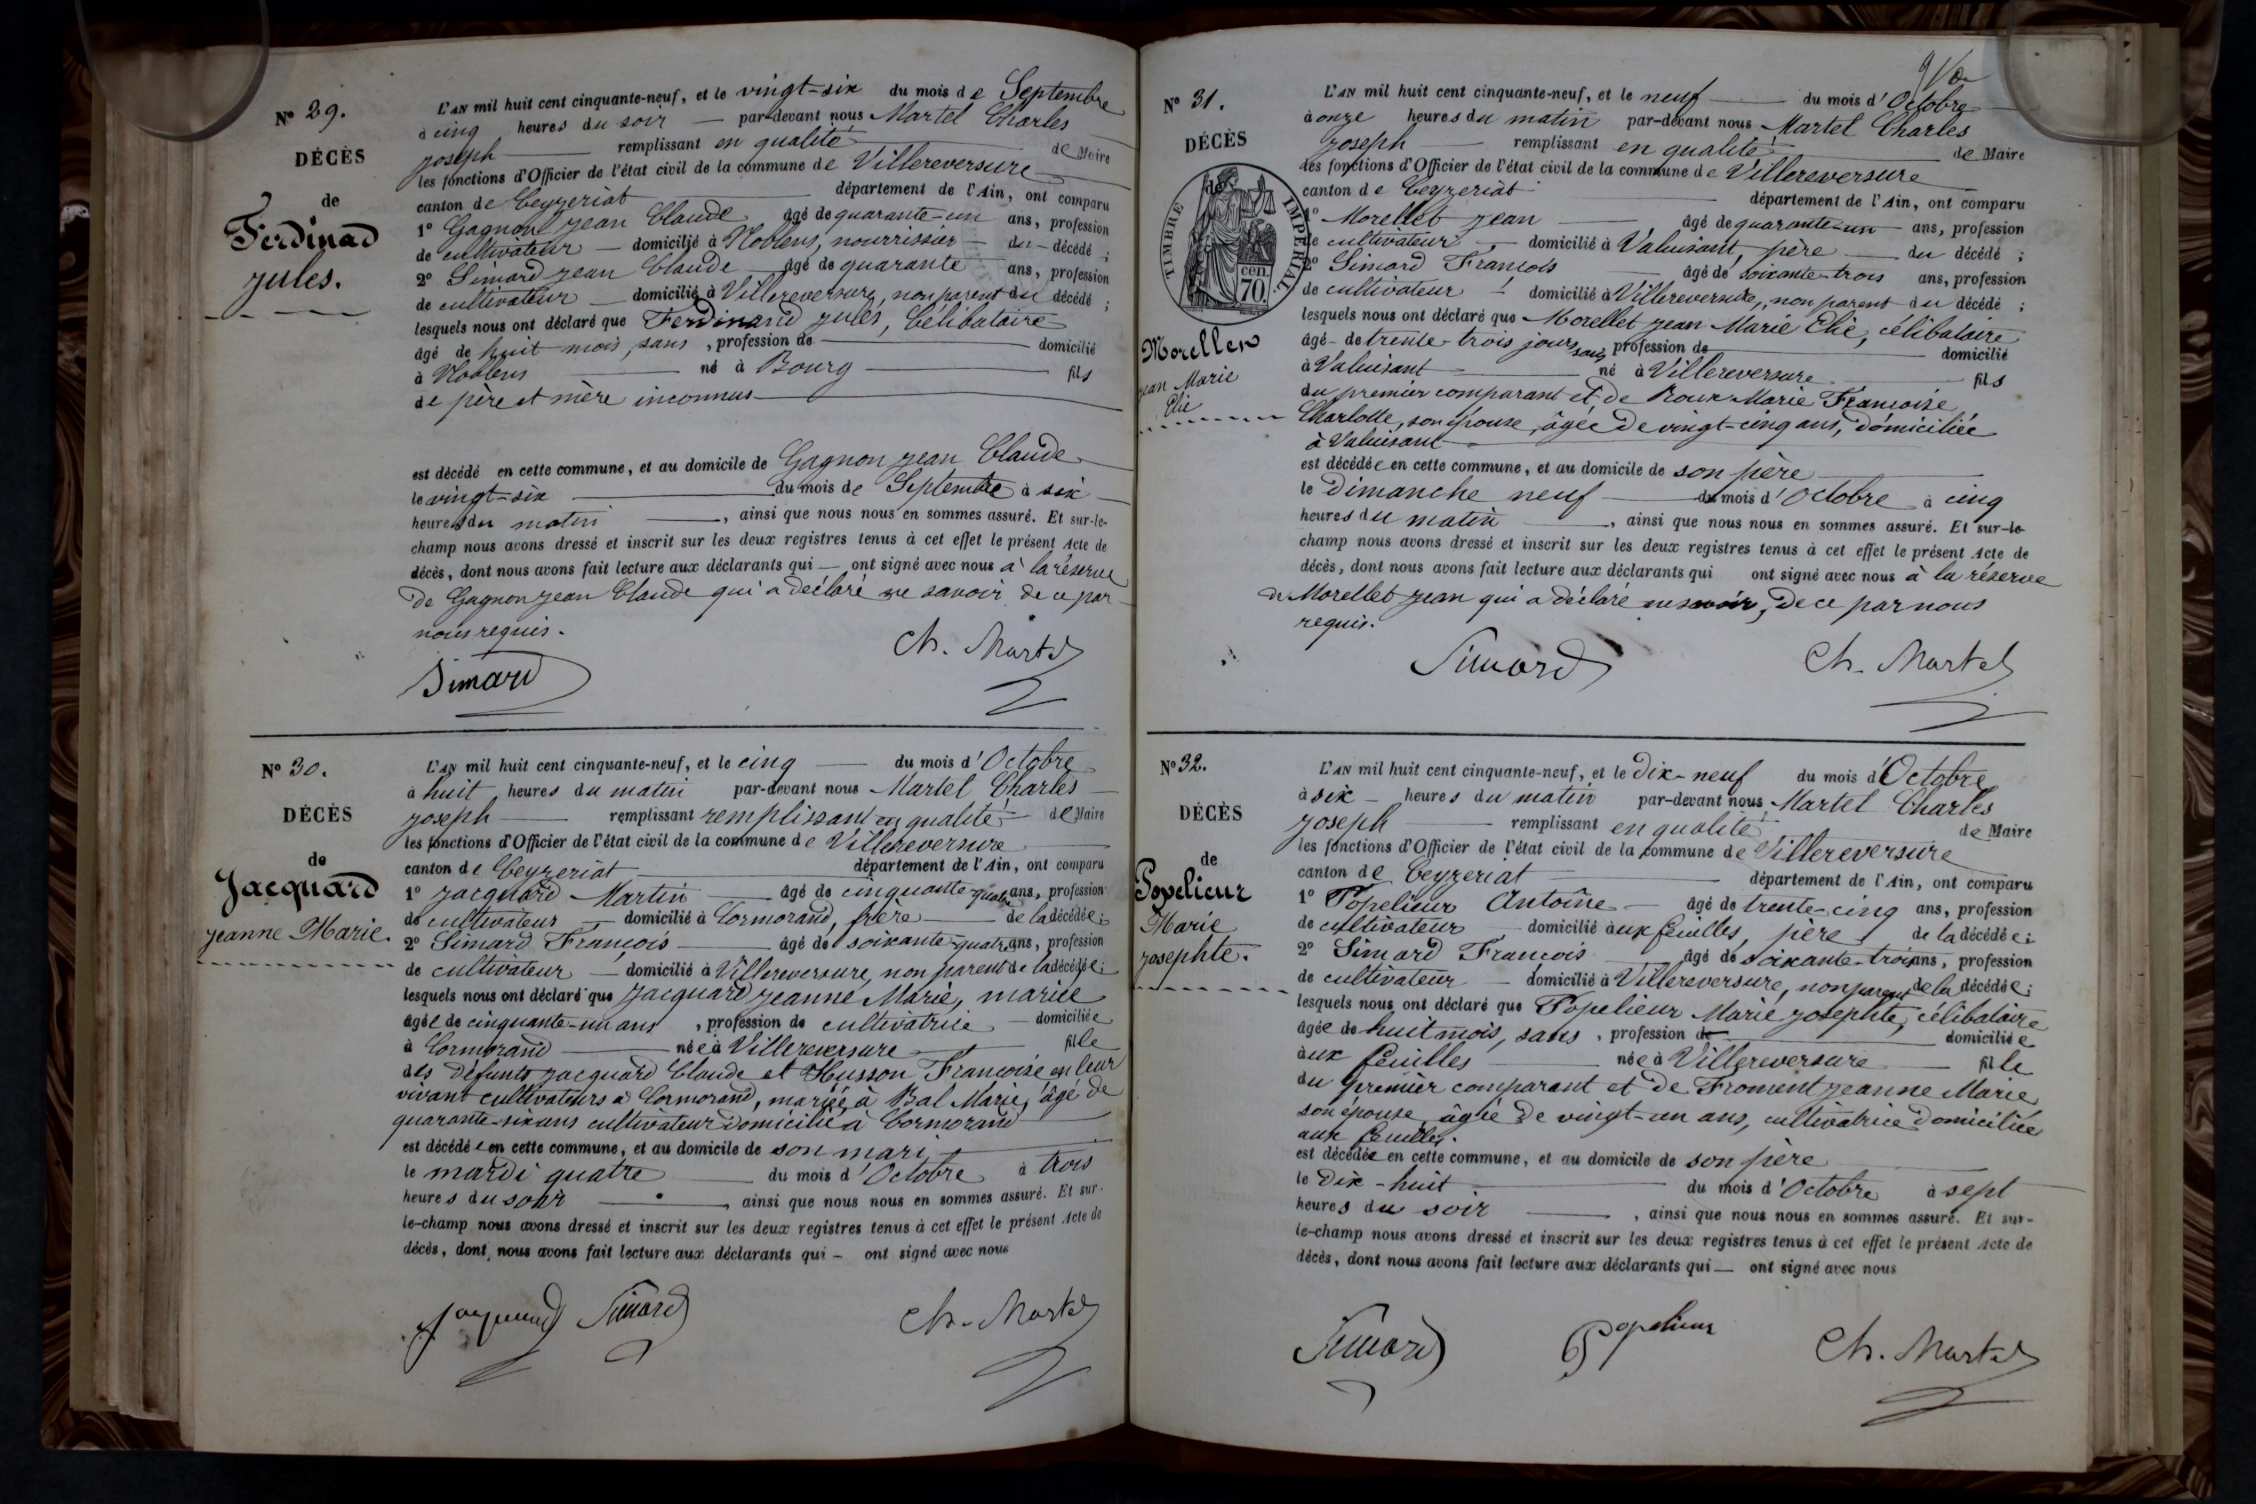 N° 29.
DÉCÈS
de
Ferdinad
jules.
L'AN mil huit cent cinquante-neuf, et le vingt-six du mois de Septembre
à cinq heures du soir par-devant nous Martel Charles
joseph remplissant en qualité de Maire
les fonctions d'Officier de l'état civil de la commune de Villereversure
canton de Ceyzeriat département de l'Ain, ont comparu
1° Gagnon jean Claude âgé de quarante-un ans, profession
de cultivateur domicilié à Noblens, nourrissier du décédé ;
2° Simard jean Claude âgé de quarante ans, profession
de cultivateur domicilié à Villereversure, non parent du décédé ;
lesquels nous ont déclaré que Ferdinand jules, Célibataire
âgé de huit mois, sans , profession de domicilié
à Noblens né à Bourg fils
de père et mère inconnus
est décédé en cette commune, et au domicile de Gagnon jean Claude
le vingt-six du mois de Septembre à six
heures du matin , ainsi que nous nous en sommes assuré. Et sur-le-
champ nous avons dressé et inscrit sur les deux registres tenus à cet effet le présent Acte de
décès, dont nous avons fait lecture aux déclarants qui — ont signé avec nous à la réserve
de Gagnon jean Claude qui a déclaré ne savoir de ce par
nous requis.
Simard Ch. Martel
N° 30.
DÉCÈS
de
Jacquard
jeanne Marie.
L'AN mil huit cent cinquante-neuf, et le cinq du mois d'Octobre
à huit heures du matin par-devant nous Martel Charles
joseph remplissant remplissant en qualité de Maire
les fonctions d'Officier de l'état civil de la commune de Villereversure
canton de Ceyzeriat département de l'Ain, ont comparu
1° jacquard Martin âgé de cinquante-quatre ans, profession
de cultivateur domicilié à Cormorand, frère de la décédée ;
2° Simard François âgé de soixante-quatre ans, profession
de cultivateur domicilié à Villereversure, non parent de la décédée ;
lesquels nous ont déclaré que jacquard jeanne Marie, mariée
âgée de cinquante-un ans , profession de cultivatrice domiciliée
à Cormorand née à Villereversure fille
des défunts jacquard Claude et Husson Françoise en leur
vivant cultivateurs à Cormorand, mariée à Bal Marie, âgé de
quarante-six ans cultivateur domicilié à Cormorand
est décédée en cette commune, et au domicile de son mari
le mardi quatre du mois d'Octobre à trois
heures du soir , ainsi que nous nous en sommes assuré. Et sur-
le-champ nous avons dressé et inscrit sur les deux registres tenus à cet effet le présent Acte de
décès, dont nous avons fait lecture aux déclarants qui — ont signé avec nous
Jacquard Simard Ch. Martel
N° 31.
DÉCÈS
de
TIMBRE IMPÉRIAL
cen.
70.
Morellet
jean Marie
Elie
L'AN mil huit cent cinquante-neuf, et le neuf du mois d'Octobre
à onze heures du matin par-devant nous Martel Charles
joseph remplissant en qualité de Maire
les fonctions d'Officier de l'état civil de la commune de Villereversure
canton de Ceyzeriat département de l'Ain, ont comparu
1° Morellet jean âgé de quarante-un ans, profession
de cultivateur domicilié à Valuisant, père du décédé ;
2° Simard François âgé de soixante-trois ans, profession
de cultivateur domicilié à Villereversure, non parent du décédé ;
lesquels nous ont déclaré que Morellet jean Marie Elie, célibataire
âgé de trente-trois jours sans, profession de domicilié
à Valuisant né à Villereversure fils
du premier comparant et de Roux Marie Françoise
Charlotte, son épouse, âgée de vingt-cinq ans, domiciliée
à Valuisant
est décédée en cette commune, et au domicile de son père
le Dimanche neuf du mois d'Octobre à cinq
heures du matin , ainsi que nous nous en sommes assuré. Et sur-le-
champ nous avons dressé et inscrit sur les deux registres tenus à cet effet le présent Acte de
décès, dont nous avons fait lecture aux déclarants qui ont signé avec nous à la réserve
de Morellet jean qui a déclaré ne savoir, de ce par nous
requis.
Simard Ch. Martel
N° 32.
DÉCÈS
de
Popelieur
Marie
josephte.
L'AN mil huit cent cinquante-neuf, et le dix-neuf du mois d'Octobre
à six heures du matin par-devant nous Martel Charles
joseph remplissant en qualité de Maire
les fonctions d'Officier de l'état civil de la commune de Villereversure
canton de Ceyzeriat département de l'Ain, ont comparu
1° Popelieur Antoine âgé de trente-cinq ans, profession
de cultivateur domicilié aux feuilles, père de la décédée ;
2° Simard François âgé de soixante-trois ans, profession
de cultivateur domicilié à Villereversure, non parent de la décédée ;
lesquels nous ont déclaré que Popelieur Marie josephte, célibataire
âgée de huit mois, sans , profession de domiciliée
aux feuilles née à Villereversure fille
du premier comparant et de Froment jeanne Marie
son épouse, âgée de vingt-un ans, cultivatrice domiciliée
aux feuilles.
est décédée en cette commune, et au domicile de son père
le Dix-huit du mois d'Octobre à sept
heures du soir , ainsi que nous nous en sommes assuré. Et sur-
le-champ nous avons dressé et inscrit sur les deux registres tenus à cet effet le présent Acte de
décès, dont nous avons fait lecture aux déclarants qui — ont signé avec nous
Simard Popelieur Ch. Martel